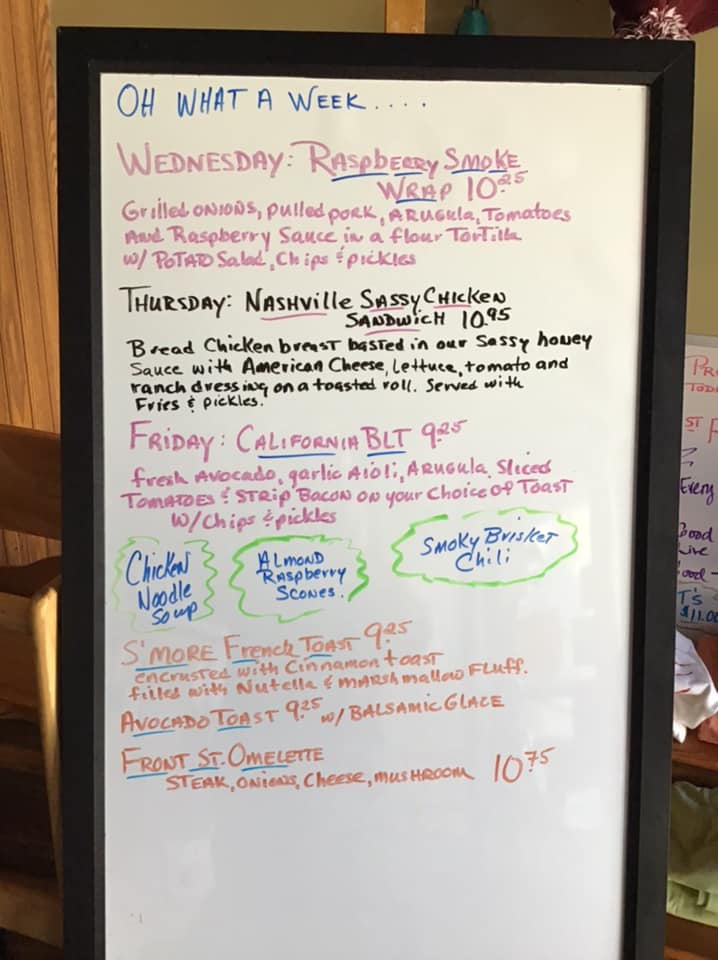 OH WHAT A WEEK....
WEDNESDAY: RASPBERRY SMOKE
WRAP 10.25
Grilled ONIONS, pulled pork, ARUGULA, Tomatoes
And Raspberry Sauce in a flour Tortilla
w/ POTATO Salad, Chips & pickles
THURSDAY: NASHVILLE SASSY CHICKEN
SANDWICH 10.95
Bread Chicken breast basted in our Sassy honey
Sauce with American Cheese, lettuce, tomato and
ranch dressing on a toasted roll. Served with
Fries & pickles.
FRIDAY: CALIFORNIA BLT 9.25
fresh Avocado, garlic Aioli, Arugula, Sliced
TOMATOES & STRIP BACON ON your Choice Of TOAST
W/Chips & pickles
Chicken
Noodle
Soup
ALMOND
RASPberry
SCONES.
SMOKY Brisket
Chili
S'MORE French TOAST 9.25
encrusted with Cinnamon toast
filled with Nutella & MARSHmallow FLUFF.
AVOCADO TOAST 9.25 w/ BALSAMIC GLACE
FRONT ST. OMELETTE
STEAK, ONIONS, Cheese, MUSHROOM 10.75
ST
Every
Live
T'S
$11.00